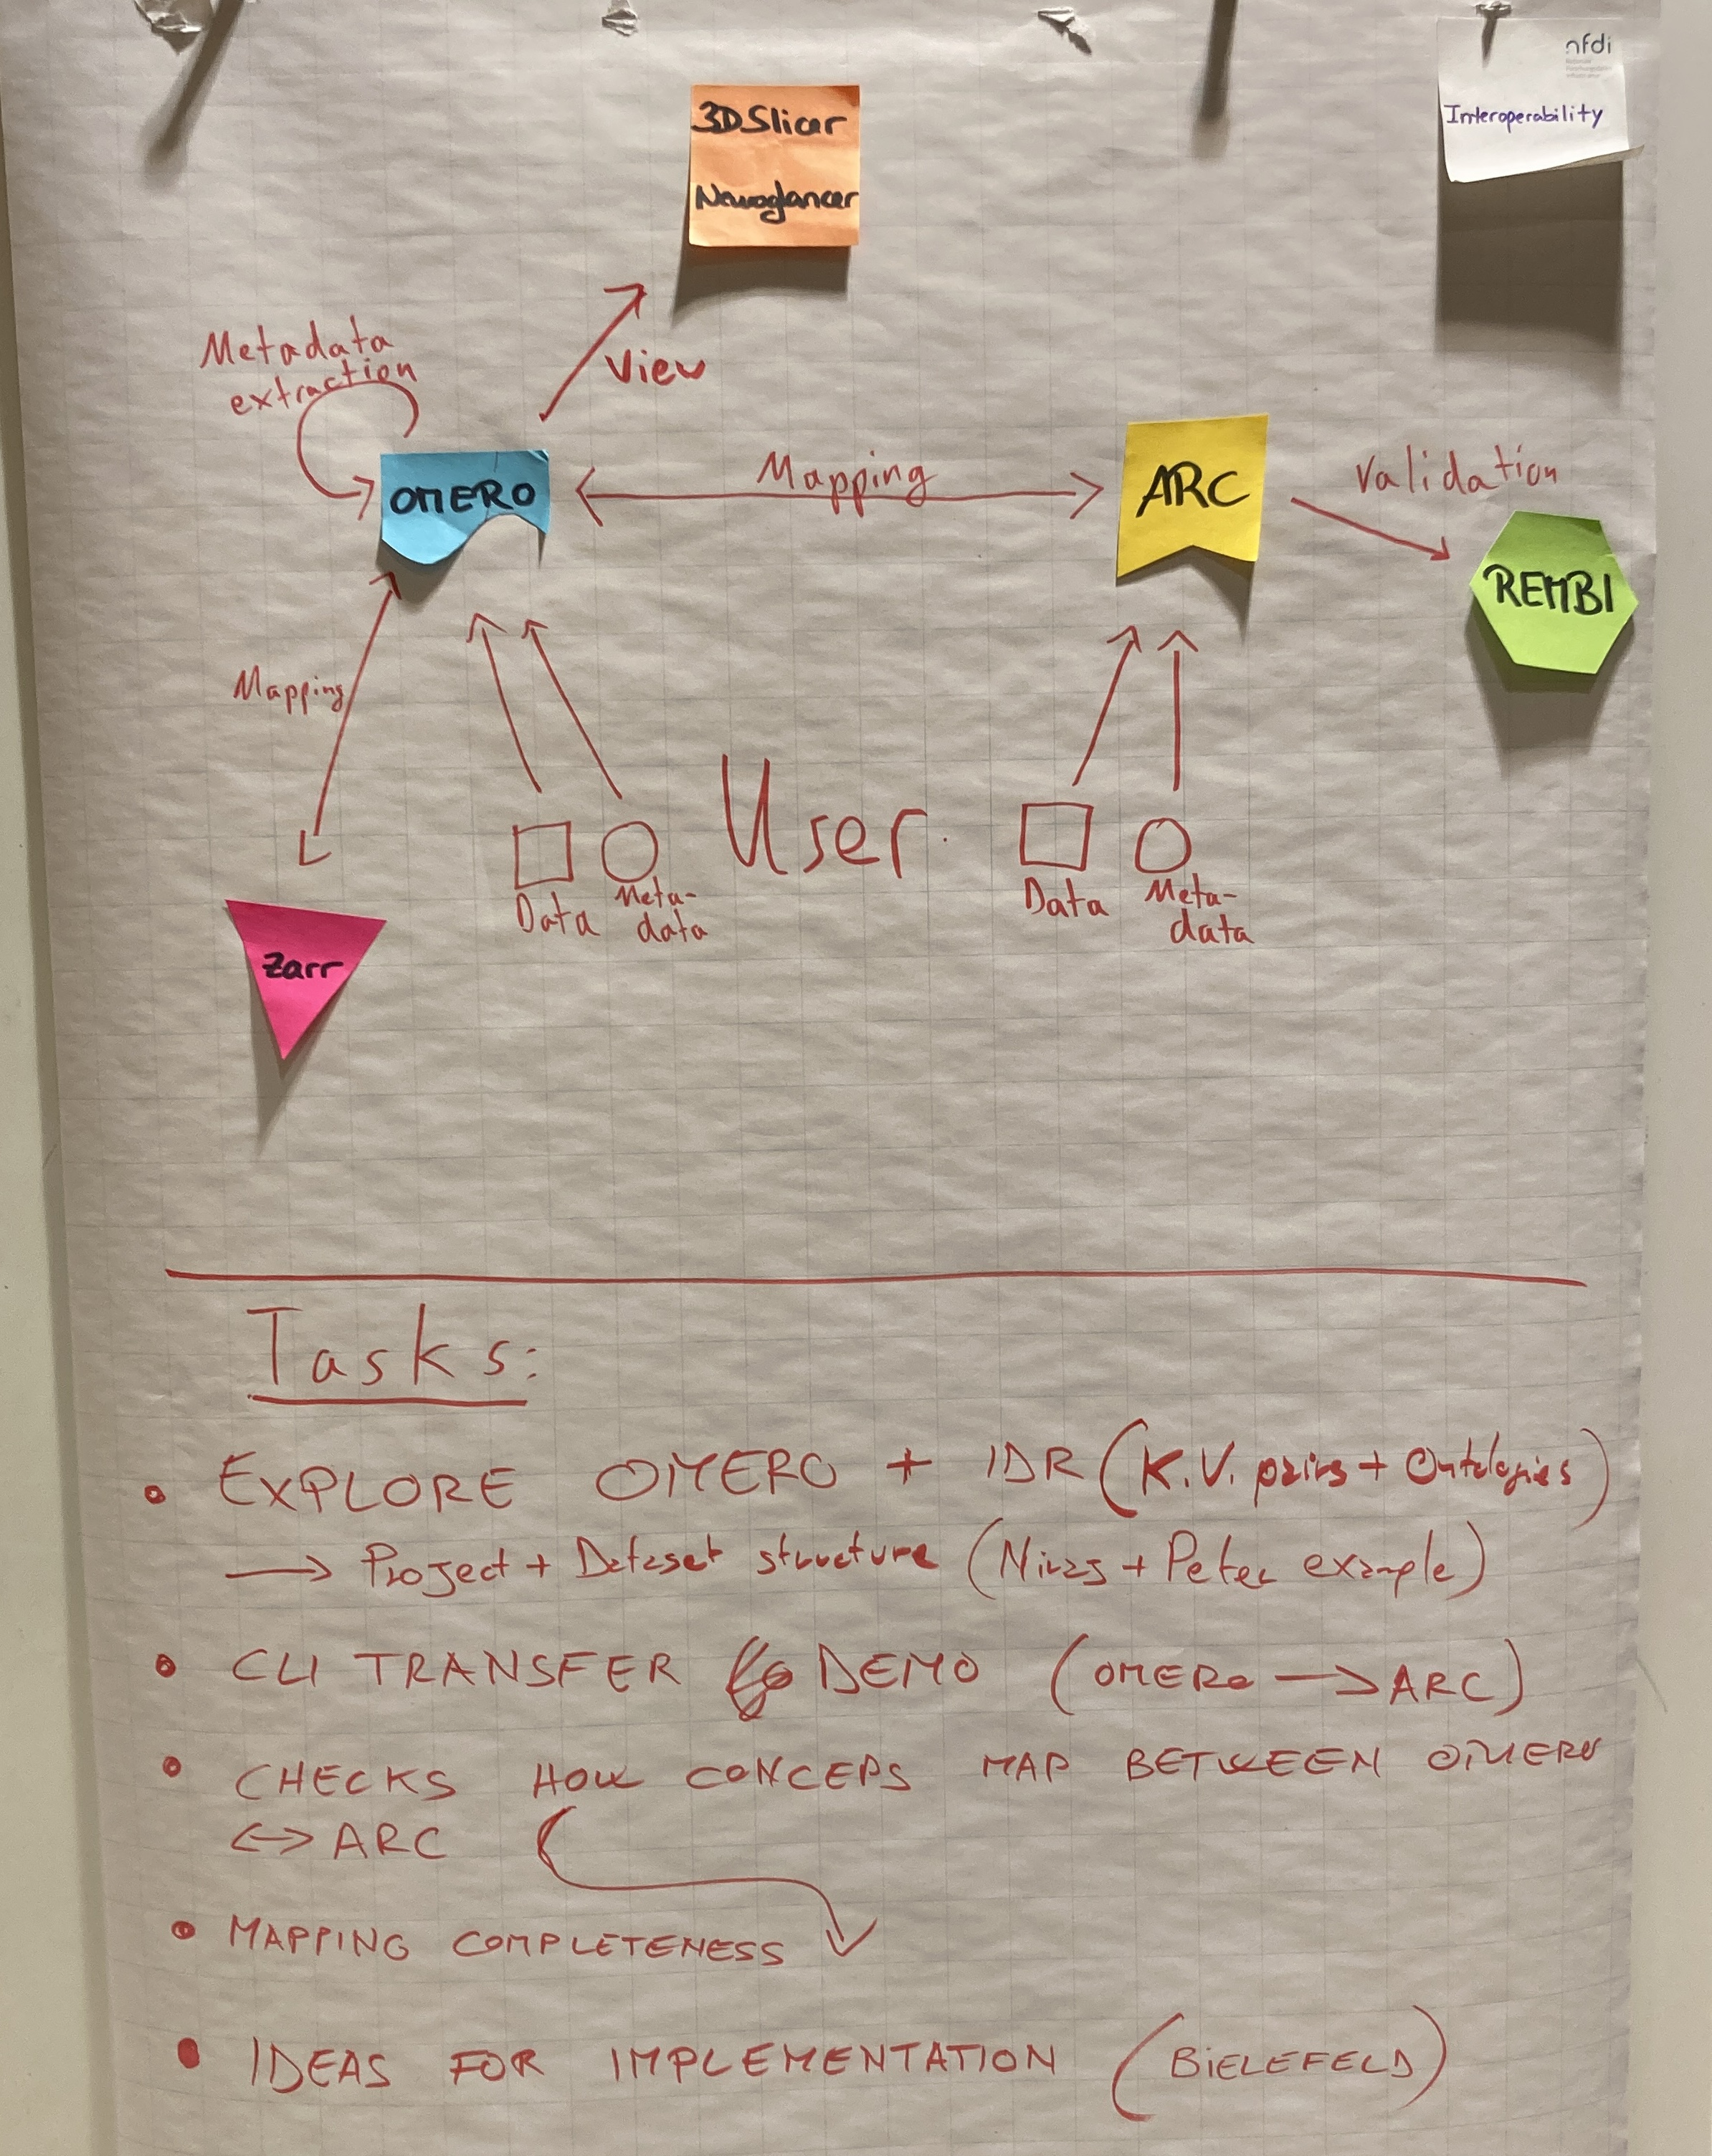 nfdi
Interoperability
3D Slicer
Neuroglancer
Metadata
extraction
View
OMERO
Mapping
ARC
Validation
REMBI
Mapping
User
Data
Meta-
data
Data
Meta-
data
Zarr
Tasks:
• EXPLORE OMERO + IDR (K.V. pairs + Ontologies)
→ Project + Dataset structure (Niraj + Peter example)
• CLI TRANSFER DEMO (OMERO → ARC)
• CHECKS HOW CONCEPS MAP BETWEEN OMERO
↔ ARC
• MAPPING COMPLETENESS
• IDEAS FOR IMPLEMENTATION (BIELEFELD)